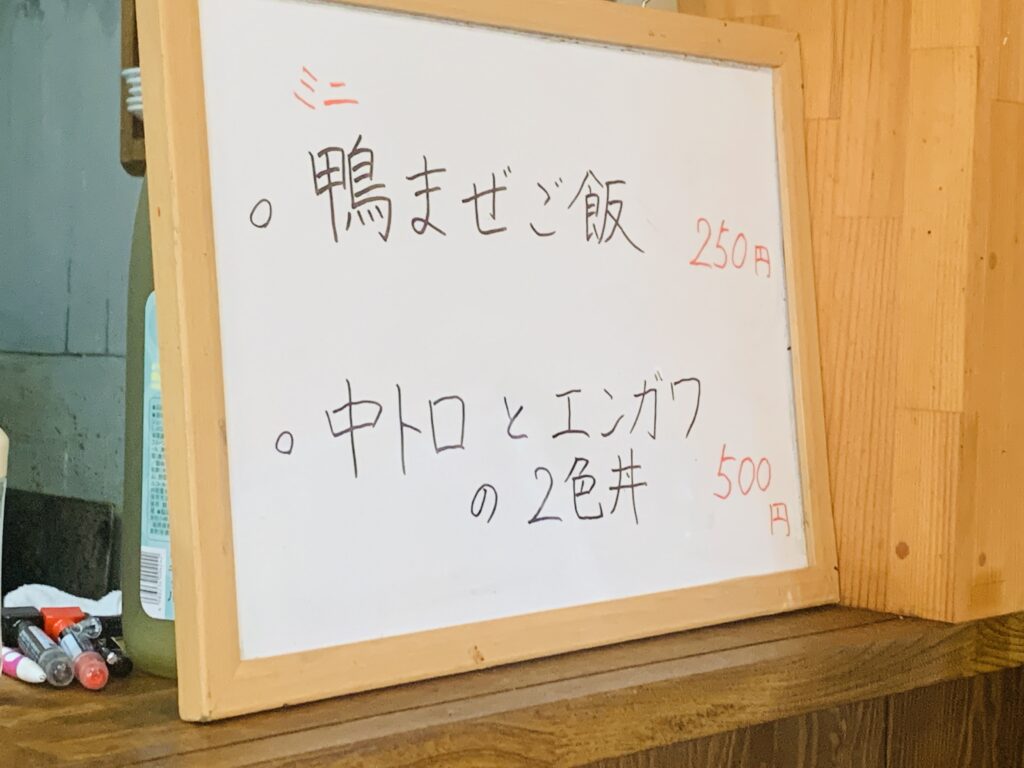 ミニ
○ 鴨まぜご飯 250円
○ 中トロとエンガワ
の2色丼 500
円